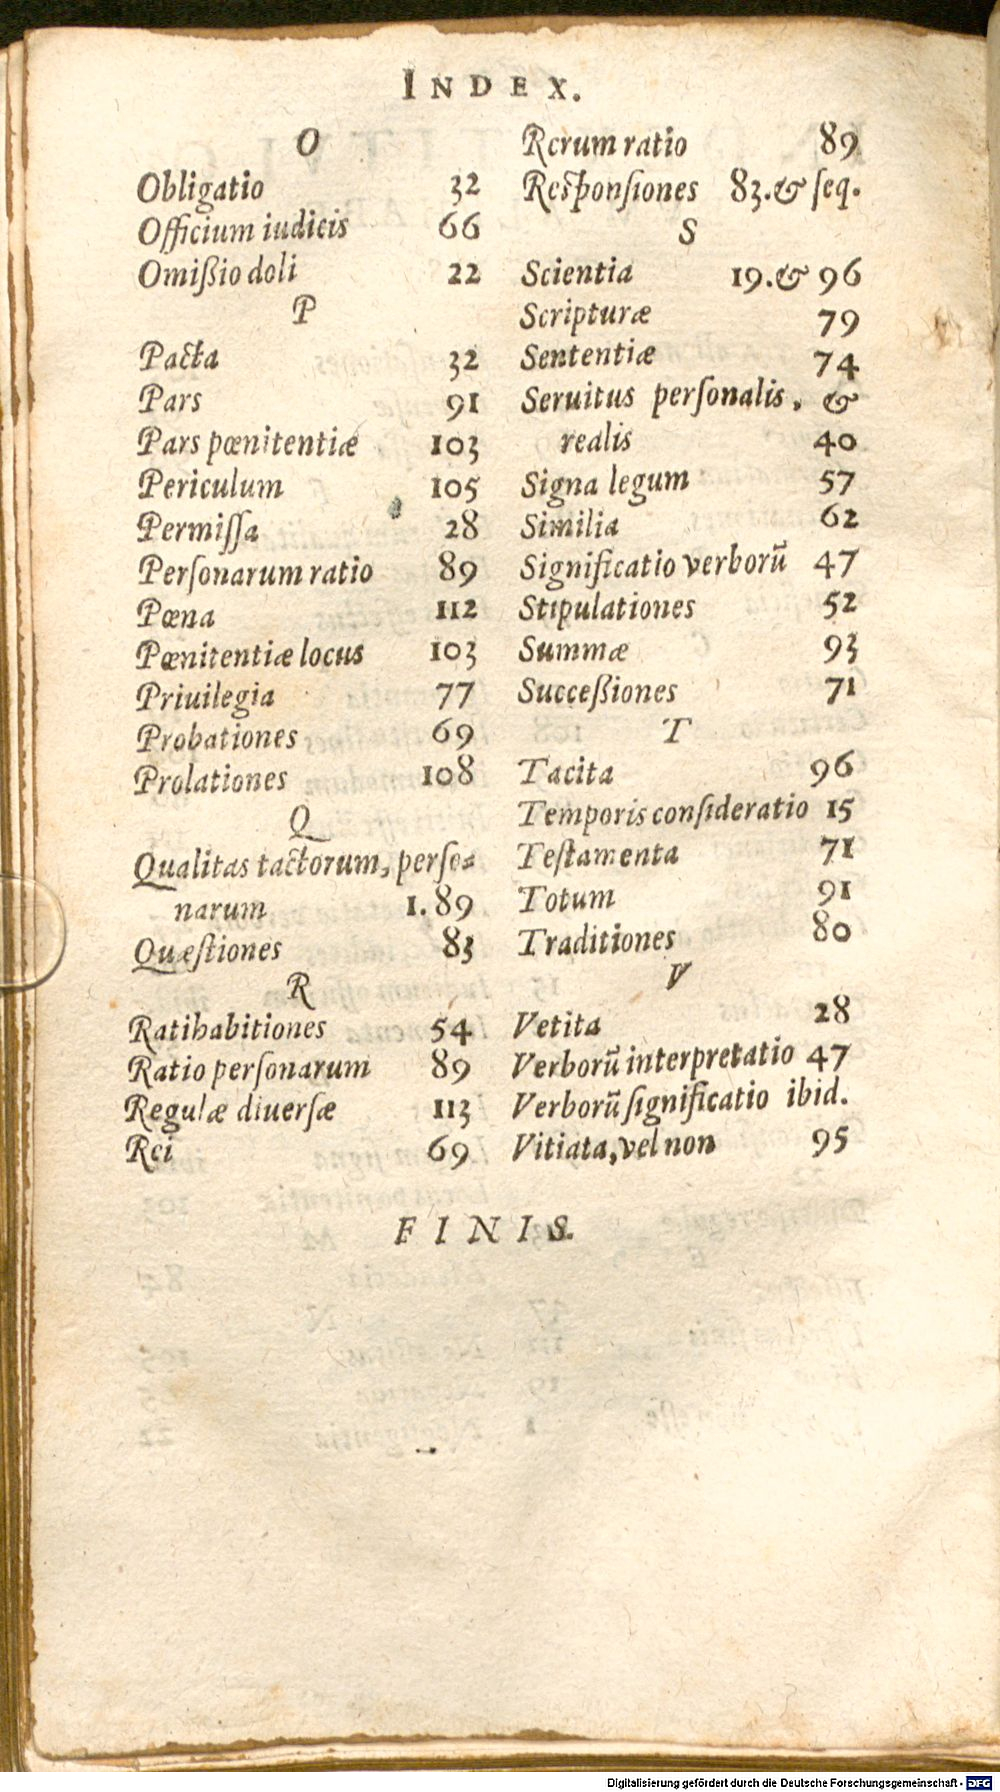 INDEX.
O
Obligatio 32
Officium iudicis 66
Omißio doli 22
P
Pacta 32
Pars 91
Pars pœnitentiæ 103
Periculum 105
Permiſſa 28
Perſonarum ratio 89
Pœna 112
Pœnitentiæ locus 103
Priuilegia 77
Probationes 69
Prolationes 108
Q
Qualitas factorum, perſo-
narum 1. 89
Quæſtiones 83
R
Ratihabitiones 54
Ratio perſonarum 89
Regulæ diuerſæ 113
Rei 69
Rerum ratio 89
Reſponſiones 83. & ſeq.
S
Scientia 19. & 96
Scripturæ 79
Sententiæ 74
Seruitus perſonalis, &
realis 40
Signa legum 57
Similia 62
Significatio verborū 47
Stipulationes 52
Summæ 93
Succeßiones 71
T
Tacita 96
Temporis conſideratio 15
Teſtamenta 71
Totum 91
Traditiones 80
V
Vetita 28
Verborū interpretatio 47
Verborū ſignificatio ibid.
Vitiata, vel non 95
FINIS.
Digitalisierung gefördert durch die Deutsche Forschungsgemeinschaft - DFG